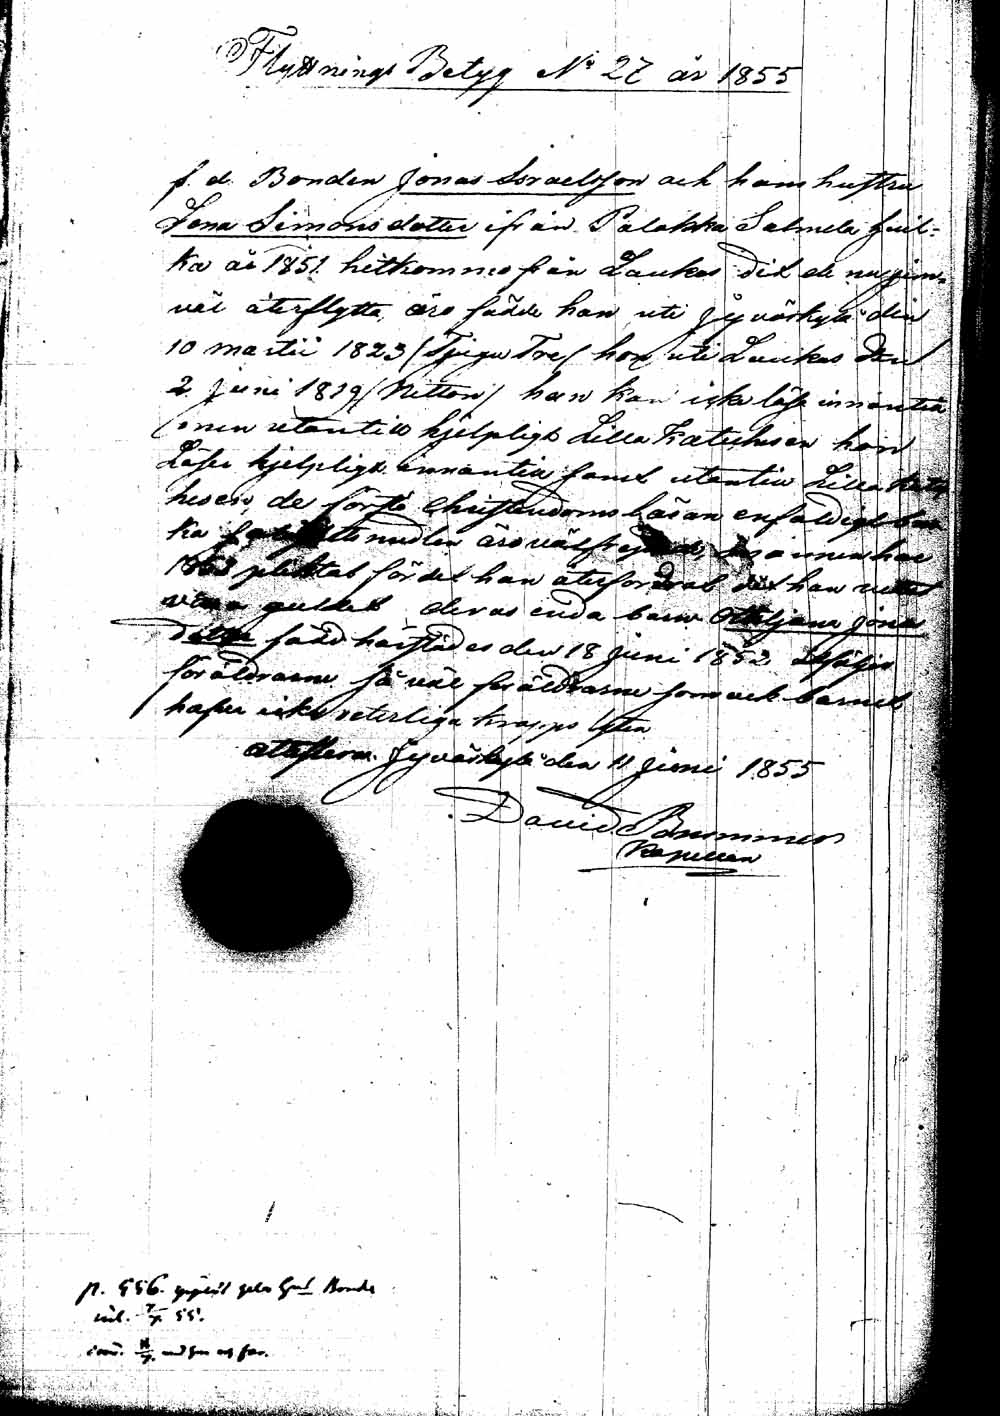 Flyttnings Betyg No 27 år 1855
f. d. Bonden Jonas Israelsson och hans hustru
Lena Simonsdotter ifrån Palokka Salmela hvil-
ka år 1851 hitkommo från Laukas dit de nu jem-
väl återflytta, äro födde han uti Jyväskylä den
10 martii 1823 (Tjugu Tre) hon uti Laukas den
2 juni 1819 (Nitton) han kan icke läsa innantill
men utantill hjelpligt Lilla Katechesen hon
Läser hjelpligt innantill samt utantill Lilla Kate
hesen, de förstå Christendoms läran enfaldigt bru
ka äro välfrejdade, men han har
1853 pliktat för det han återfordrat det han
vara guldet deras enda barn Ottiljana Jonas
dotter född härstädes den 18 Juni 1852 åtföljer
föräldrarne Så väl föräldrarne som ock barnet
hafva icke veterliga kroppslyten
attesterar. Jyväskylä den 11 Juni 1855
David Brummer
Kapellan
p. 556. Bonde
inl. 7/7 55.